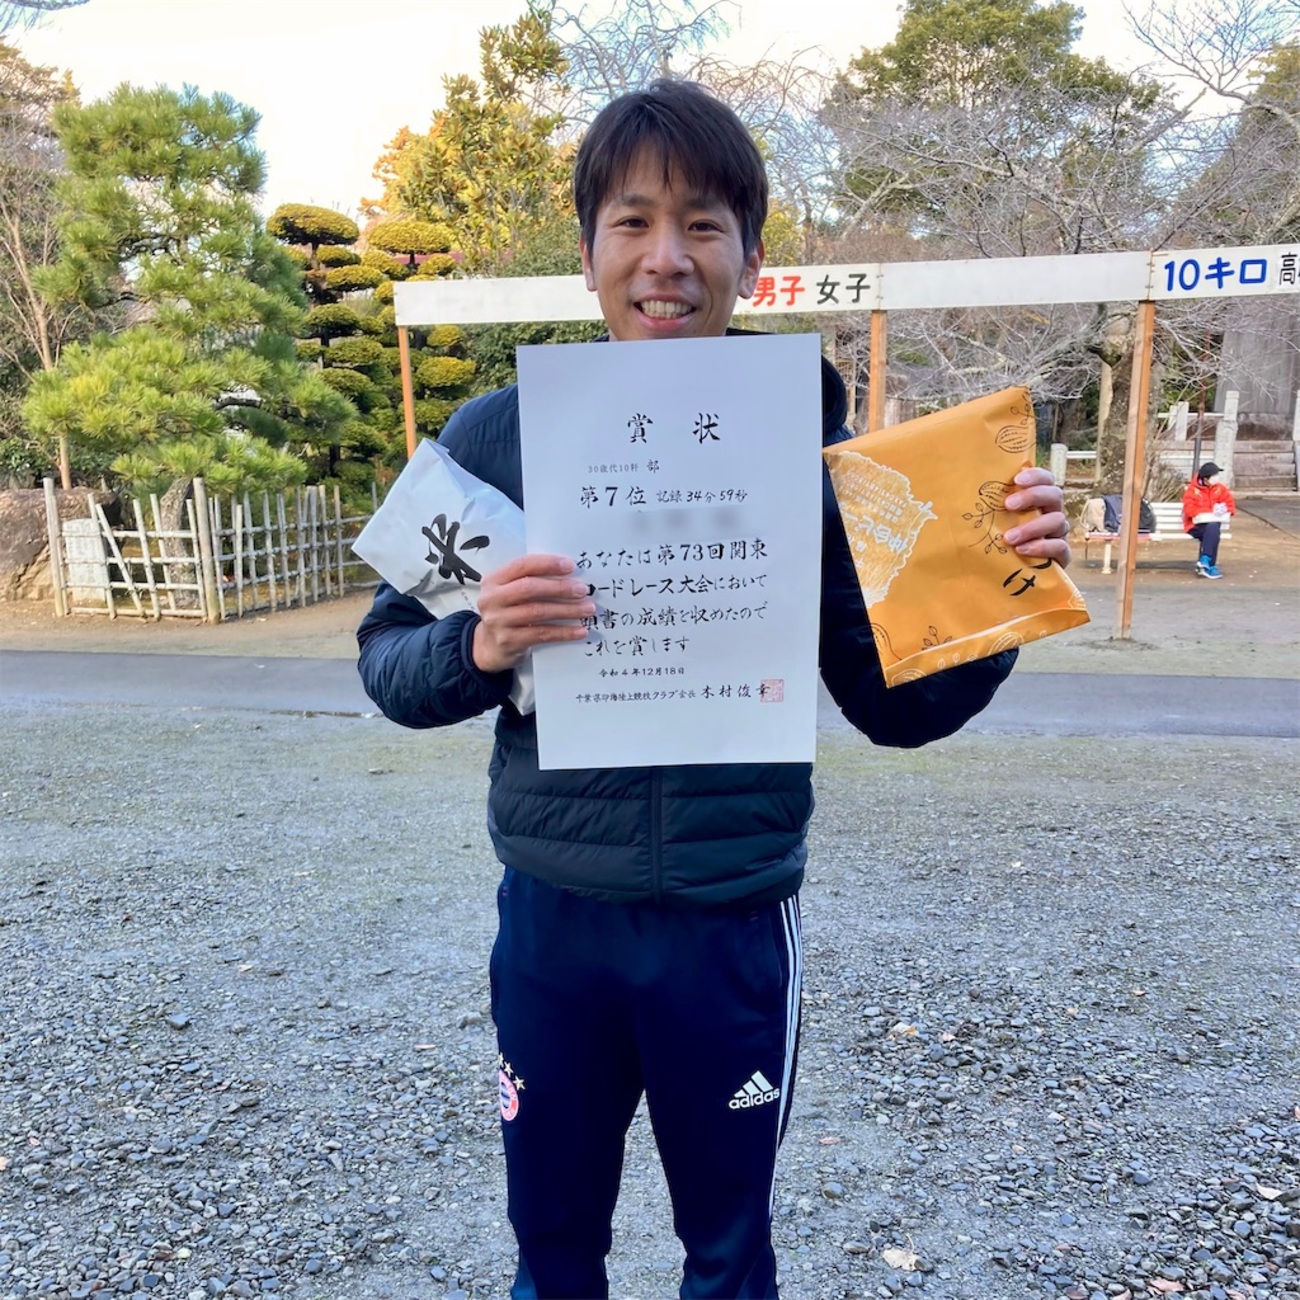 男子 女子
10キロ 高
賞 状
30歳代10粁 部
第7位 記録 34分59秒
あなたは第73回関東
ロードレース大会において
頭書の成績を収めたので
これを賞します
令和4年12月18日
千葉県印旛陸上競技クラブ会長 木村俊幸
米
adidas